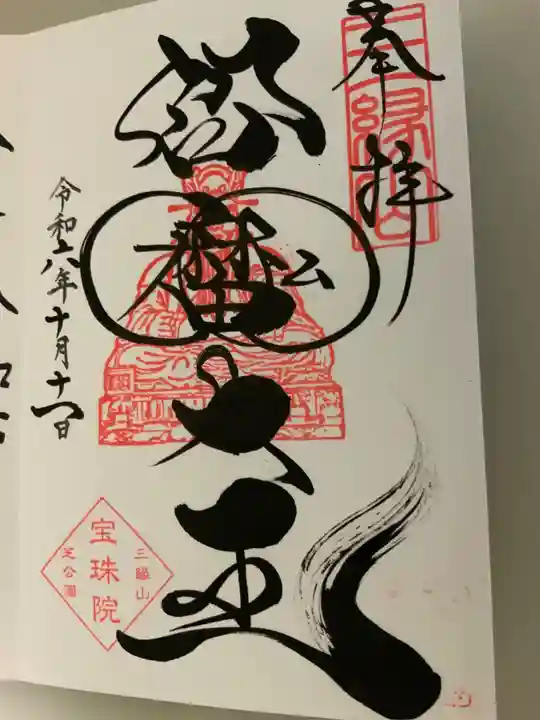 奉拝
三縁山
閻魔大王
令和六年十月十一日
三縁山
宝珠院
芝公園